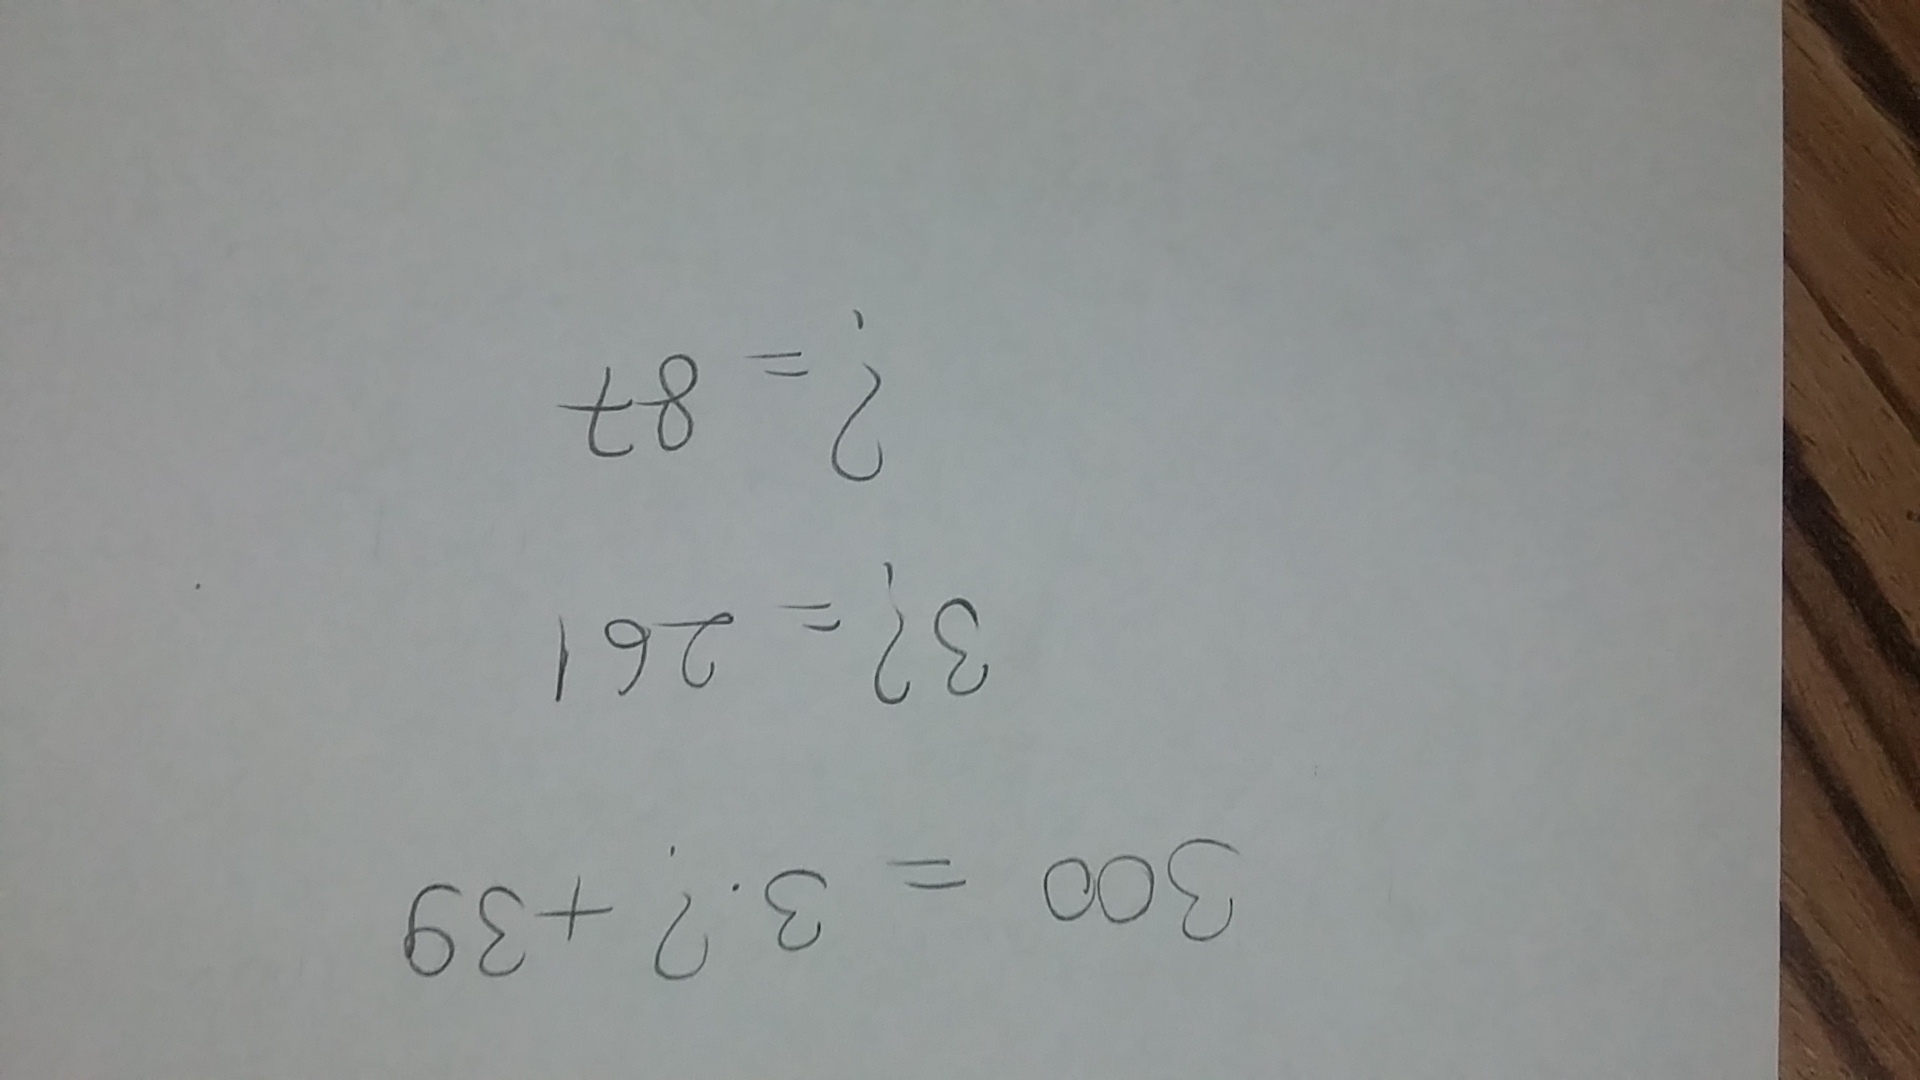 300 = 3.? +39
3? = 261
? = 87